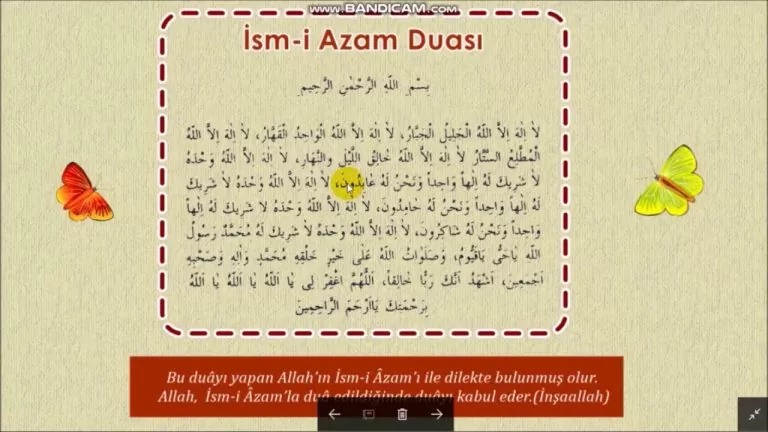 www.BANDICAM.com
İsm-i Azam Duası
بِسْمِ اللهِ الرَّحْمٰنِ الرَّحِيمِ
لاَ اِلٰهَ اِلاَّ اللهُ الْجَلِيلُ الْجَبَّارُ، لاَ اِلٰهَ اِلاَّ اللهُ الْوَاحِدُ الْقَهَّارُ، لاَ اِلٰهَ اِلاَّ اللهُ
الْمُطَّلِعُ السَّتَّارُ لاَ اِلٰهَ اِلاَّ اللهُ خَالِقُ اللَّيْلِ وَالنَّهَارِ، لاَ اِلٰهَ اِلاَّ اللهُ وَحْدَهُ
لاَ شَرِيكَ لَهُ اِلٰهاً وَاحِداً وَنَحْنُ لَهُ عَابِدُونَ، لاَ اِلٰهَ اِلاَّ اللهُ وَحْدَهُ لاَ شَرِيكَ
لَهُ اِلٰهاً وَاحِداً وَنَحْنُ لَهُ حَامِدُونَ، لاَ اِلٰهَ اِلاَّ اللهُ وَحْدَهُ لاَ شَرِيكَ لَهُ اِلٰهاً
وَاحِداً وَنَحْنُ لَهُ شَاكِرُونَ، لاَ اِلٰهَ اِلاَّ اللهُ وَحْدَهُ لاَ شَرِيكَ لَهُ مُحَمَّدٌ رَسُولُ
اللهِ يَاحَىُّ يَاقَيُّومُ، وَصَلَوَاتُ اللهِ عَلٰى خَيْرِ خَلْقِهِ مُحَمَّدٍ وَاٰلِهِ وَصَحْبِهِ
اَجْمَعِينَ، اَشْهَدُ اَنَّكَ رَبًّا خَالِقاً، اَللّٰهُمَّ اغْفِرْ لِى يَا اَللهُ يَا اَللهُ يَا اَللهُ
بِرَحْمَتِكَ يَااَرْحَمَ الرَّاحِمِينَ
Bu duâyı yapan Allah'ın İsm-i Âzam'ı ile dilekte bulunmuş olur.
Allah, İsm-i Âzam'la duâ edildiğinde duâyı kabul eder.(İnşaallah)